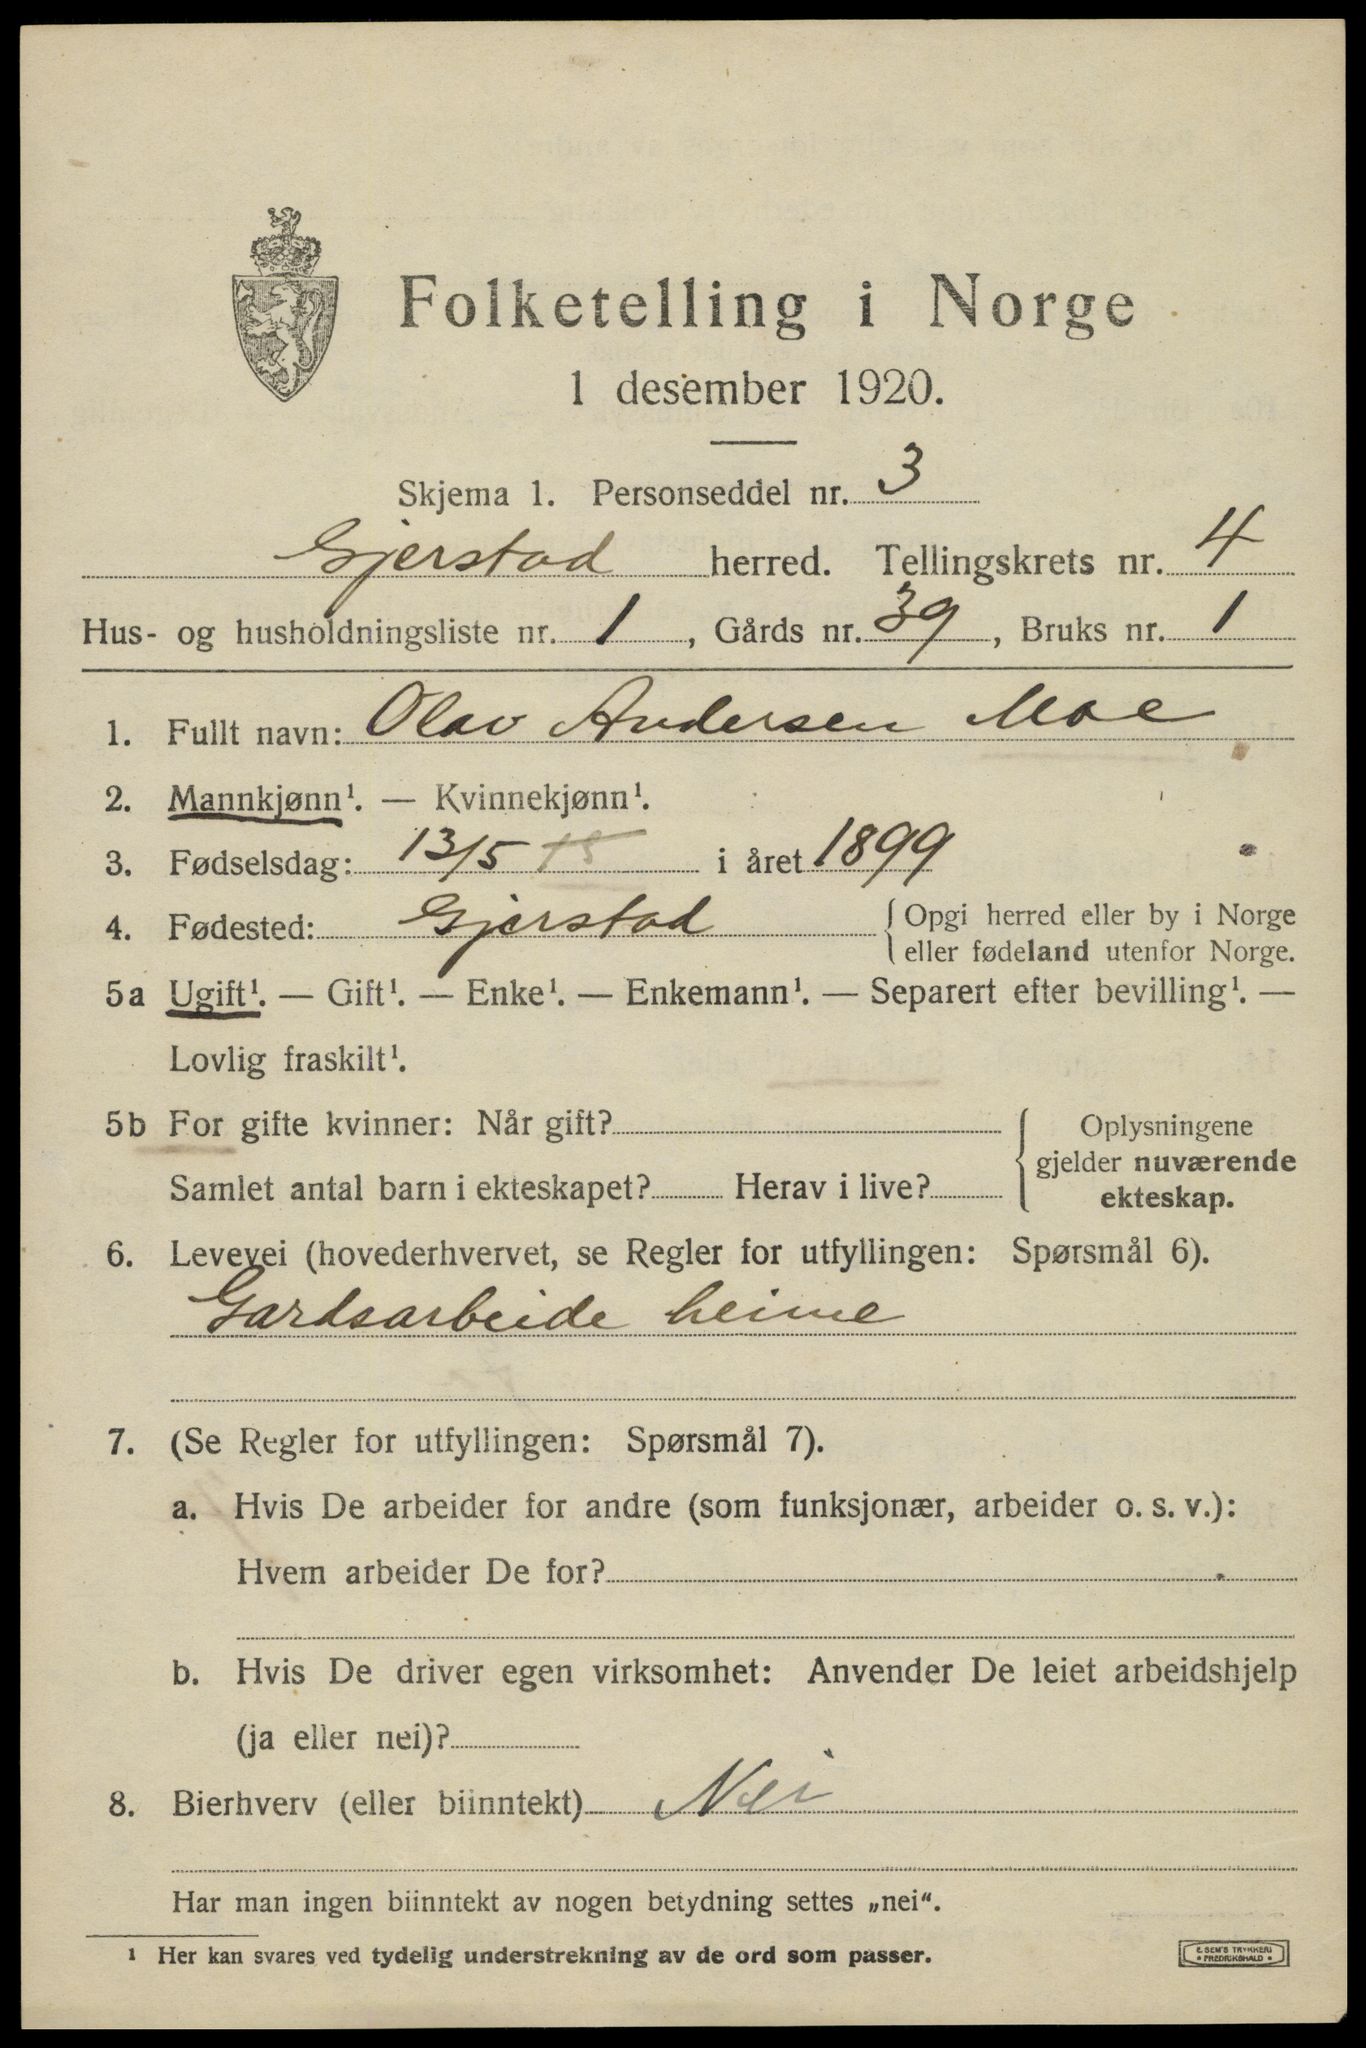 Folketelling i Norge
1 desember 1920.
Skjema 1. Personseddel nr. 3
Gjerstad herred. Tellingskrets nr. 4
Hus- og husholdningsliste nr. 1, Gårds nr. 39, Bruks nr. 1
1. Fullt navn: Olav Andersen Moe
2. Mannkjønn¹. — Kvinnekjønn¹.
3. Fødselsdag: 13/5 i året 1899
4. Fødested: Gjerstad { Opgi herred eller by i Norge
eller fødeland utenfor Norge.
5a Ugift¹. — Gift¹. — Enke¹. — Enkemann¹. — Separert efter bevilling¹. —
Lovlig fraskilt¹.
5b For gifte kvinner: Når gift?
Samlet antal barn i ekteskapet? Herav i live?
Oplysningene
gjelder nuværende
ekteskap.
6. Levevei (hovederhvervet, se Regler for utfyllingen: Spørsmål 6).
Gardsarbeide heime
7. (Se Regler for utfyllingen: Spørsmål 7).
a. Hvis De arbeider for andre (som funksjonær, arbeider o. s. v.):
Hvem arbeider De for?
b. Hvis De driver egen virksomhet: Anvender De leiet arbeidshjelp
(ja eller nei)?
8. Bierhverv (eller biinntekt) Nei
Har man ingen biinntekt av nogen betydning settes „nei“.
¹ Her kan svares ved tydelig understrekning av de ord som passer.
E. SEM'S TRYKKERI
FREDRIKSHALD